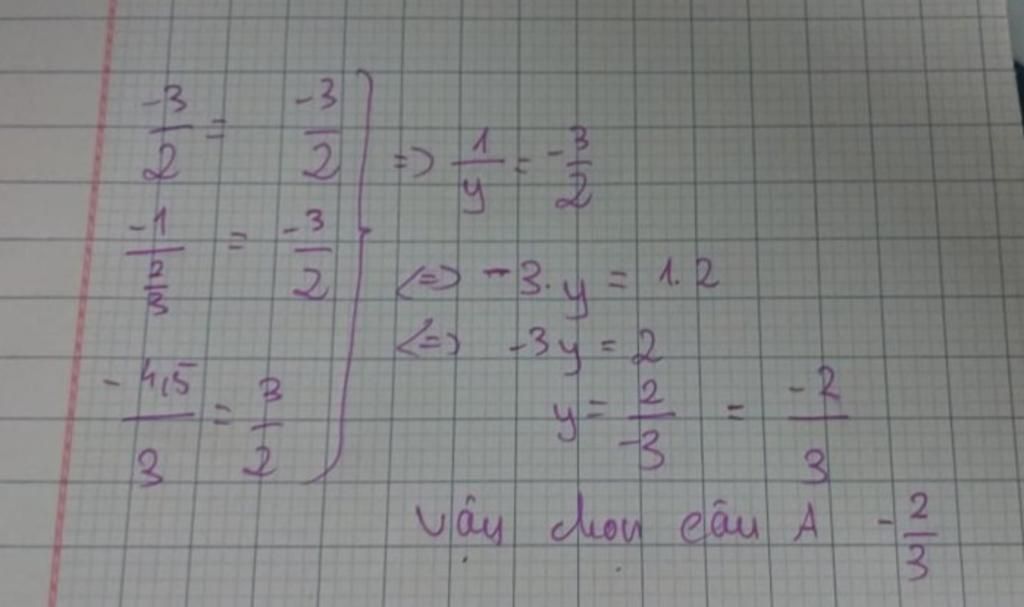 -3/2 = -3/2
-1/(2/3) = -3/2
-4,5/3 = 3/2
=> 1/y = -3/2
<=> -3.y = 1.2
<=> -3y = 2
y = 2/-3 = -2/3
Vậy chọn câu A -2/3